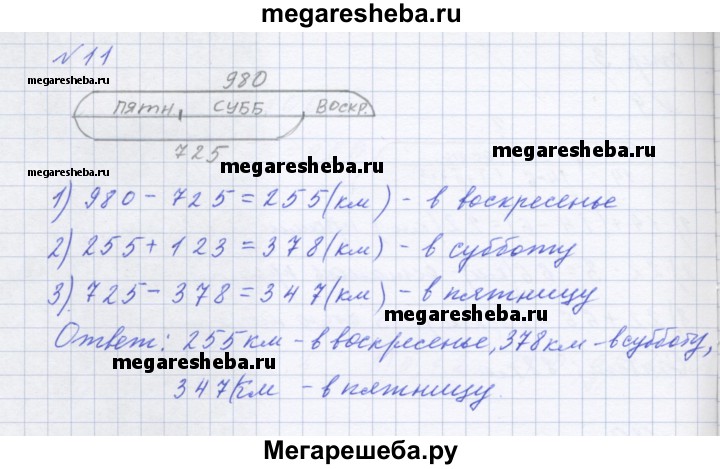 megaresheba.ru
№11
980
megaresheba.ru
megaresheba.ru
ПЯТН. СУББ. ВОСКР.
725
megaresheba.ru
megaresheba.ru
1) 980 - 725 = 255(км) - в воскресенье
2) 255 + 123 = 378(км) - в субботу
3) 725 - 378 = 347(км) - в пятницу
megaresheba.ru
Ответ: 255 км - в воскресенье, 378 км - в субботу,
megaresheba.ru
347 км - в пятницу.
Мегарешеба.ру